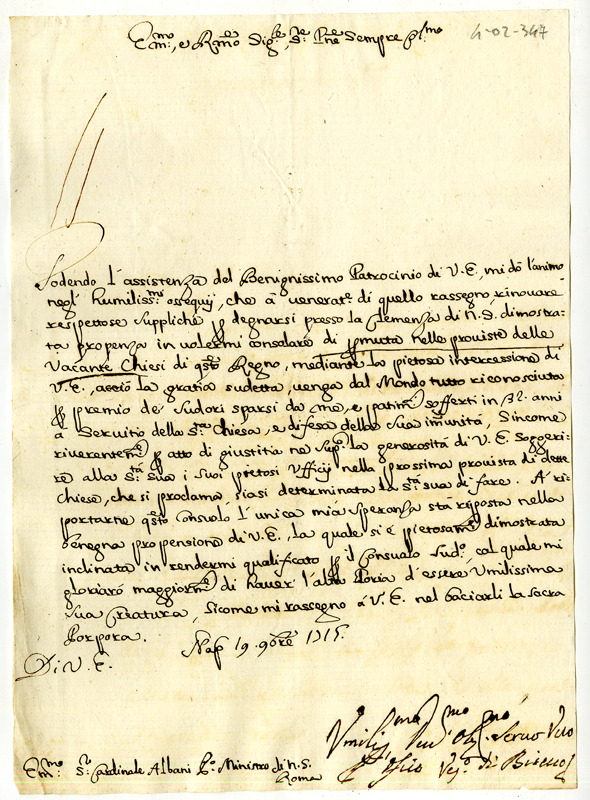 Em:mo, e Rmo Sigre, Sre Pne Sempre
4-02-347
Godendo l'assistenza del Benignissimo Patrocinio di V.E., mi dò l'animo
negl' humilissmi ossequij, che à venerate di quello rassegno, rinouare
respettose suppliche p degnarsi presso la Clemenza di N.S. dimostra-
ta propenza in volermi consolare di pmuta nelle prouiste delle
Vacante Chiesi di qsto Regno, mediante la pietosa intercessione di
V.E., acciò la gratia sudetta, uenga dal Mondo tutto riconosciuta
p premio de Sudori sparsi da me, e patimti sofferti in 32. anni
à Seruitio della Sta Chiesa, e difesa della Sua imunità, Sincome
riuerentemte p atto di giustitia ne supco la generosità di V.E. soggeri-
re alla Stà sua i suoi pietosi Vfficij nella prossima prouista di dette
Chiese, che si proclama, siasi determinata la Stà sua di fare. A ri-
portarne qsto Consuolo l'unica mia speranza stà riposta nella
benegna propensione di V.E., la quale si è pietosamte dimostrata
inclinata in rendermi qualificato p il Consuolo Sudo, cal quale mi
gloriarò maggiormte di hauer l'alta Gloria d'essere Vmilissima
Sua Creatura, sicome mi rassegno à V.E. nel baciarli la Sacra
Porpora.
Nap 19. 9bre 1715.
Di V.E.
Vmilissmo Obl. Seruo Vero
Vesco di
Em:mo Sr Cardinale Albani Po Ministro di N.S.
Roma